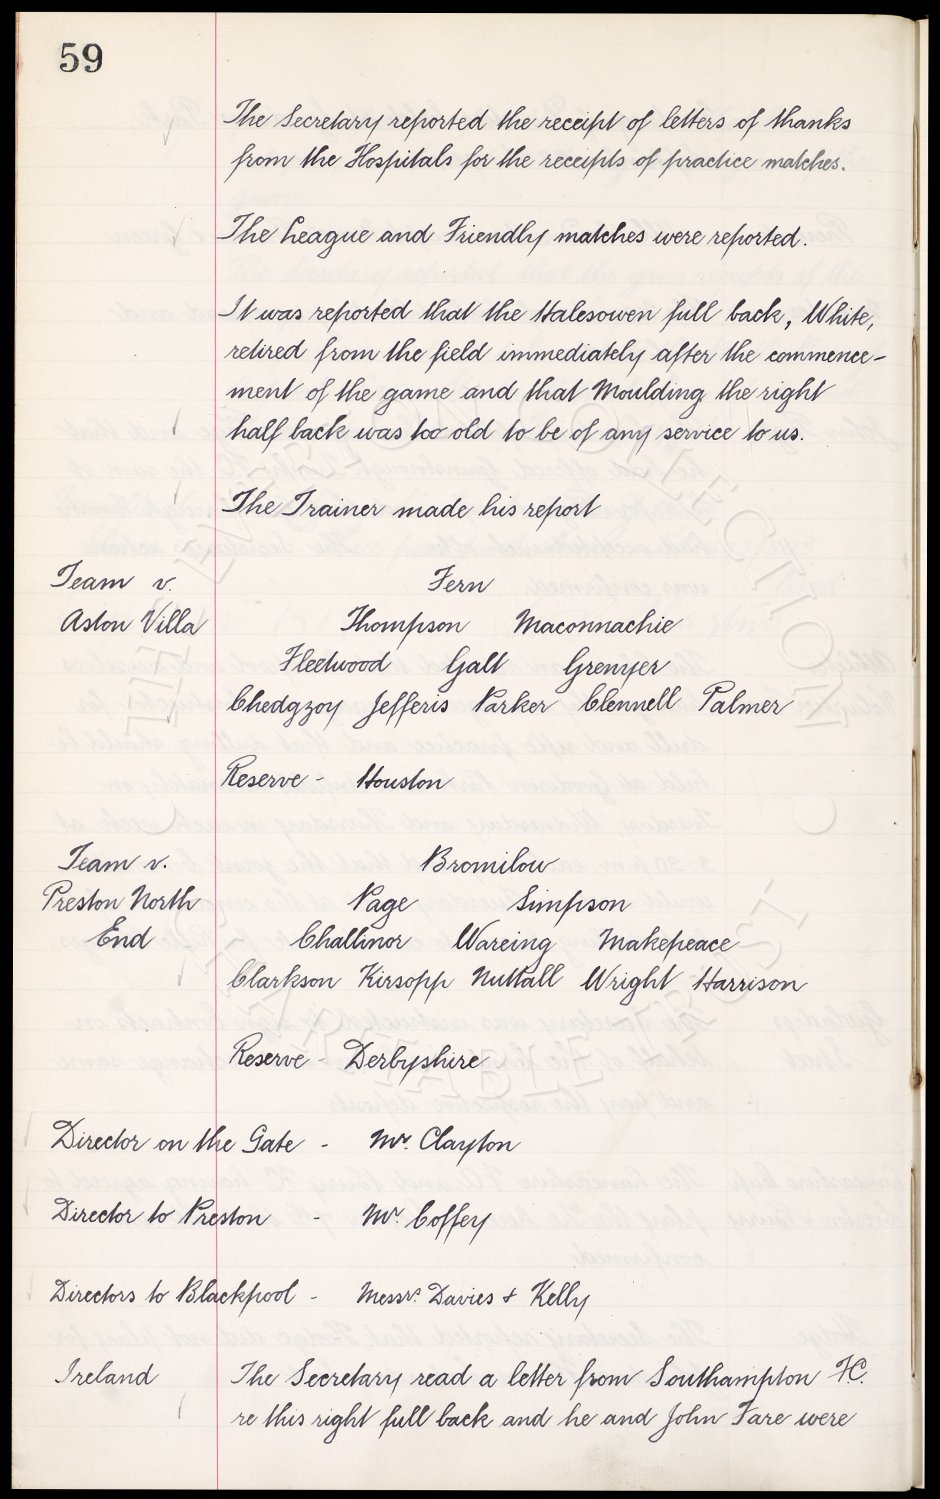 59
The Secretary reported the receipt of letters of thanks
from the Hospitals for the receipts of practice matches.
The League and Friendly matches were reported.
It was reported that the Halesowen full back, White,
retired from the field immediately after the commence-
ment of the game and that Moulding the right
half back was too old to be of any service to us.
The Trainer made his report
Team v. Fern
Aston Villa Thompson Maconnachie
Fleetwood Galt Grenyer
Chedgzoy Jefferis Parker Clennell Palmer
Reserve - Houston
Team v. Bromilow
Preston North Page Simpson
End Challinor Wareing Makepeace
Clarkson Kirsopp Nuttall Wright Harrison
Reserve - Derbyshire
Director on the Gate - Mr. Clayton
Director to Preston - Mr. Coffey
Directors to Blackpool - Messrs. Davies & Kelly
Ireland The Secretary read a letter from Southampton F.C.
re this right full back and he and John Fare were
THE EVERTON COLLECTION
CHARITABLE TRUST